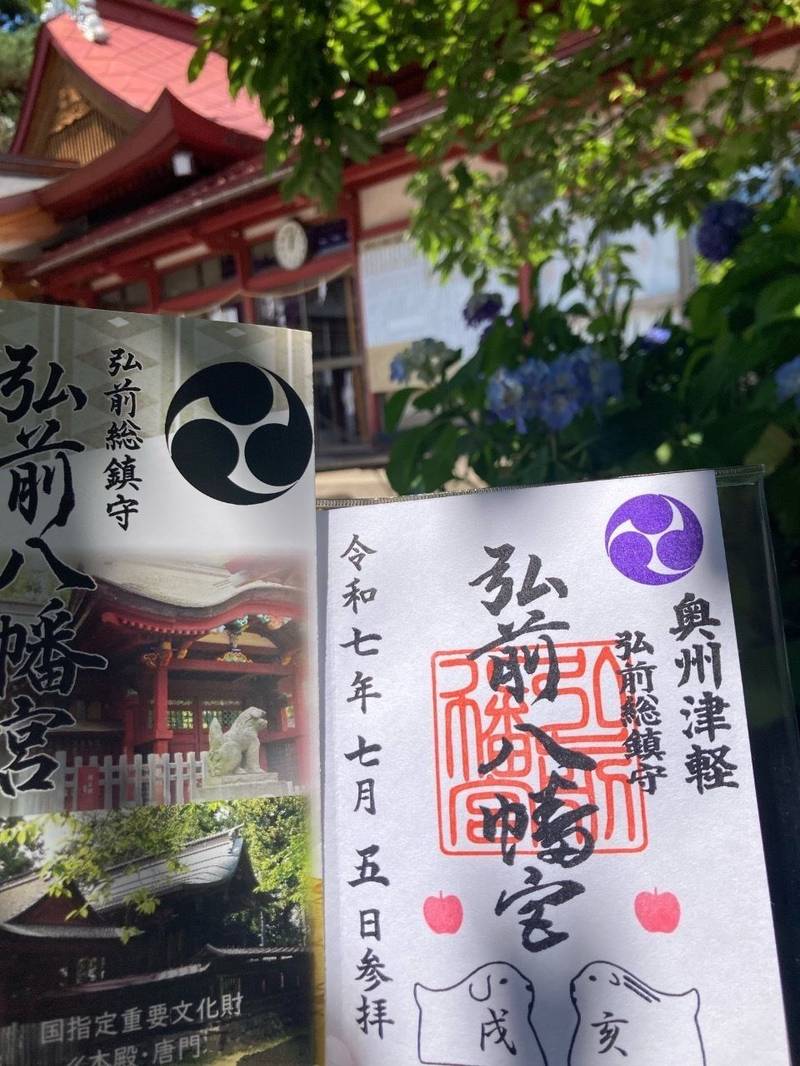 弘前総鎮守
弘前八幡宮
国指定重要文化財
本殿・唐門
奥州津軽
弘前総鎮守
弘前八幡宮
令和七年七月五日参拝
戌
亥